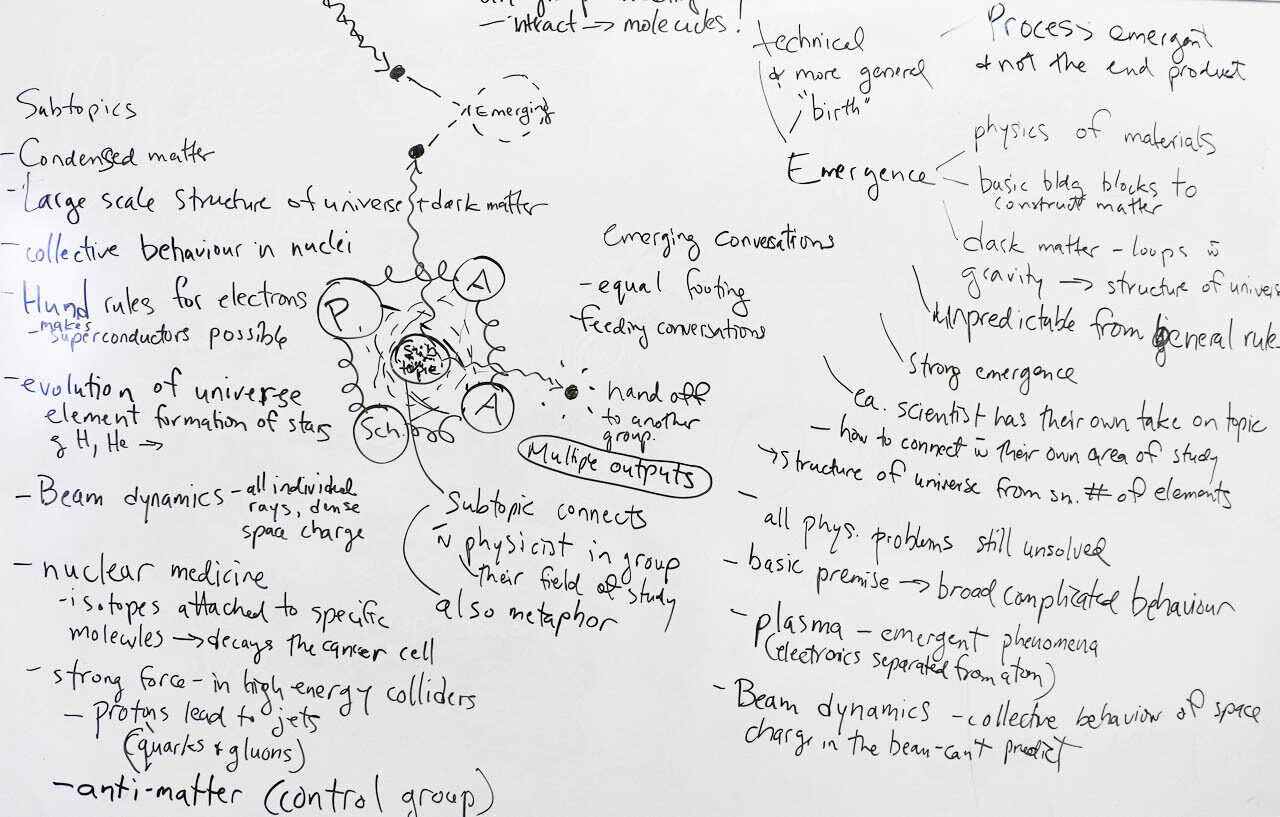 - interact → molecules!
Subtopics
- Condensed matter
- Large scale structure of universe + dark matter
- collective behaviour in nuclei
- Hund rules for electrons
- makes
superconductors possible
- evolution of universe
element formation of stars
g H, He →
- Beam dynamics - all individual
rays, dense
space charge
- nuclear medicine
- isotopes attached to specific
molecules → decays the cancer cell
- strong force - in high energy colliders
- Protons lead to jets
(quarks + gluons)
- anti-matter (control group)
Emerging
P.
A
A
Sch.
Sub
topic
emerging conversations
- equal footing
feeding conversations
hand off
to another
group.
Multiple outputs
Subtopic connects
w̄ physicist in group
their field of study
also metaphor
technical
& more general
"birth"
Process emergent
& not the end product
Emergence
physics of materials
basic bldg blocks to
construct matter
dark matter - loops w̄
gravity → structure of univers
unpredictable from general rules
strong emergence
ea. scientist has their own take on topic
- how to connect w̄ their own area of study
→ structure of universe from sm. # of elements
- all phys. problems still unsolved
- basic premise → broad complicated behaviour
- plasma - emergent phenomena
(electronics separated from atom)
- Beam dynamics - collective behaviour of space
charge in the beam - can't predict